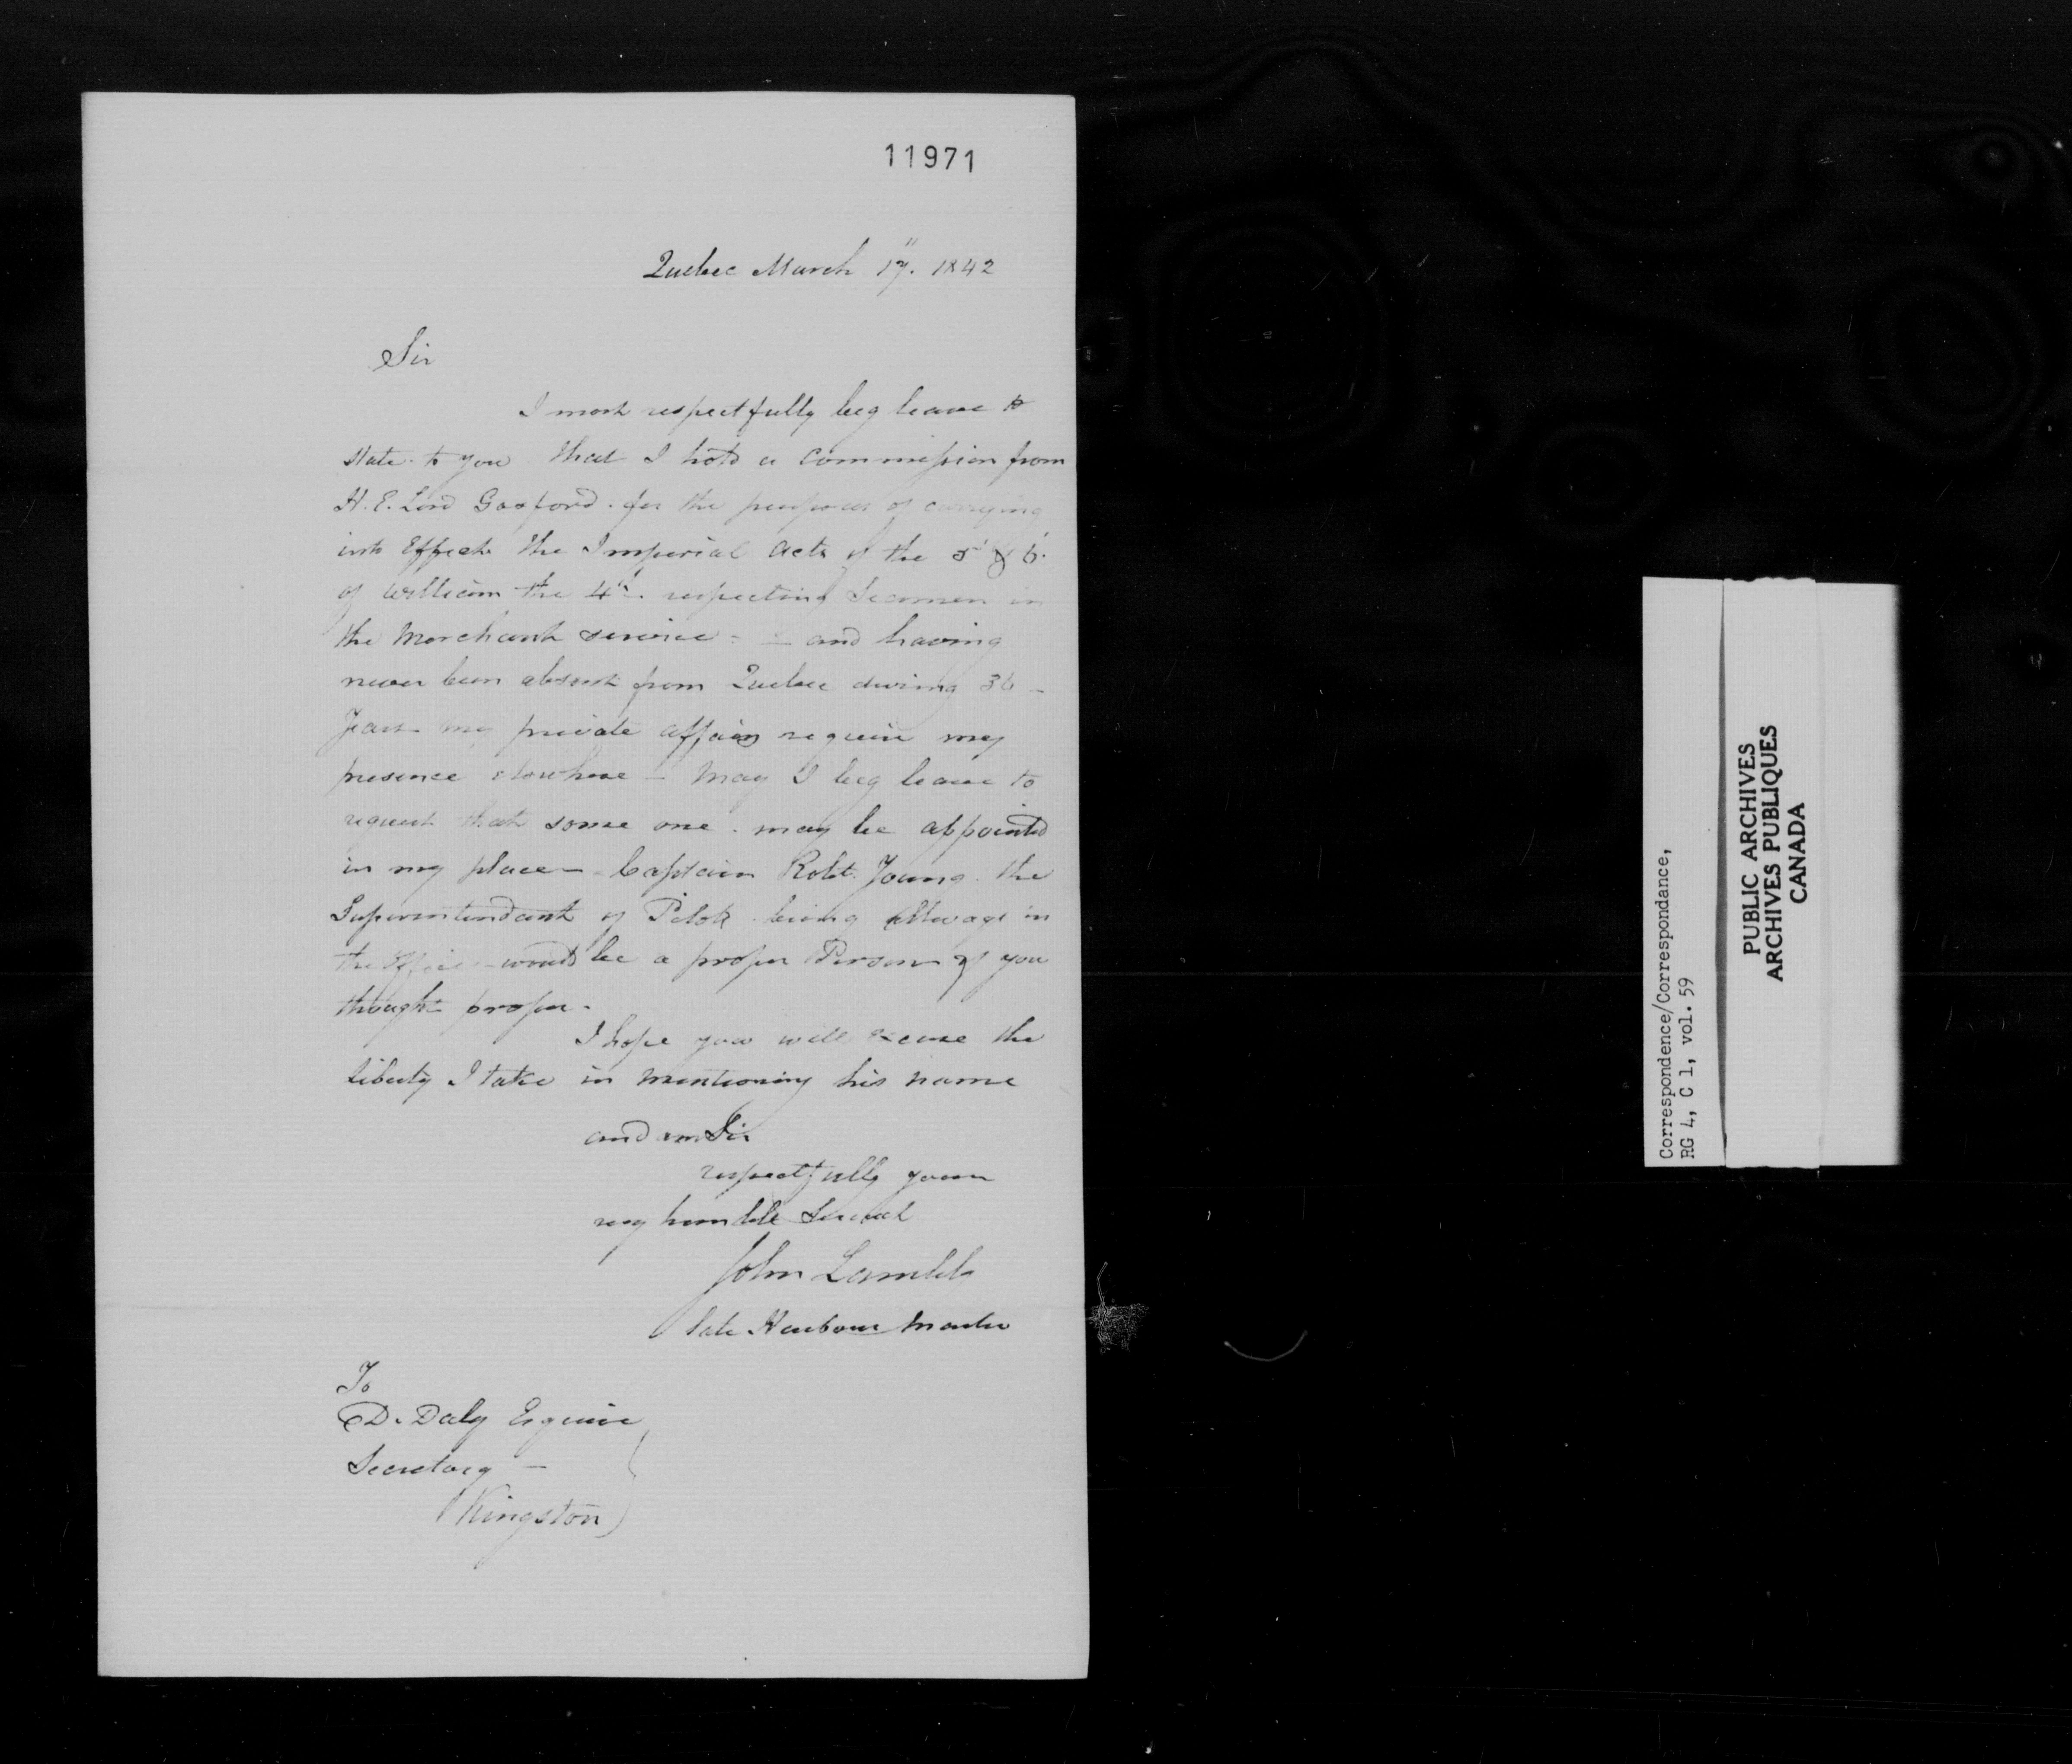 11971
Quebec March 17. 1842
Sir
I most respectfully beg leave to
state to you that I hold a Commission from
H. E. Lord Gosford. for the purposes of carrying
into Effect the Imperial Acts of the 5 & 6
of William the 4th. respecting Seamen in
the Merchant service - and having
never been absent from Quebec during 36 -
Years my private affairs require my
presence elsewhere - May I beg leave to
request that some one. may be appointed
in my place - Captain Robt. Young. the
Superintendant of Pilots being Allways in
the Office - would be a proper Person if you
thought proper -
I hope you will excuse the
liberty I take in mentioning his name
and am Sir
respectfully your
very humble Servant
John Lambly
late Harbour Master
To
D. Daly Esquire
Secretary -
Kingston
Correspondence/Correspondance,
RG 4, C 1, vol. 59
PUBLIC ARCHIVES
ARCHIVES PUBLIQUES
CANADA